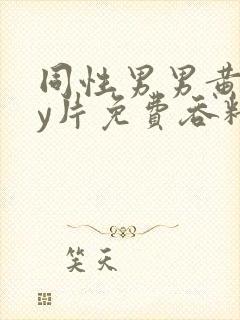 同性男男黄
y片免费吞
笑天